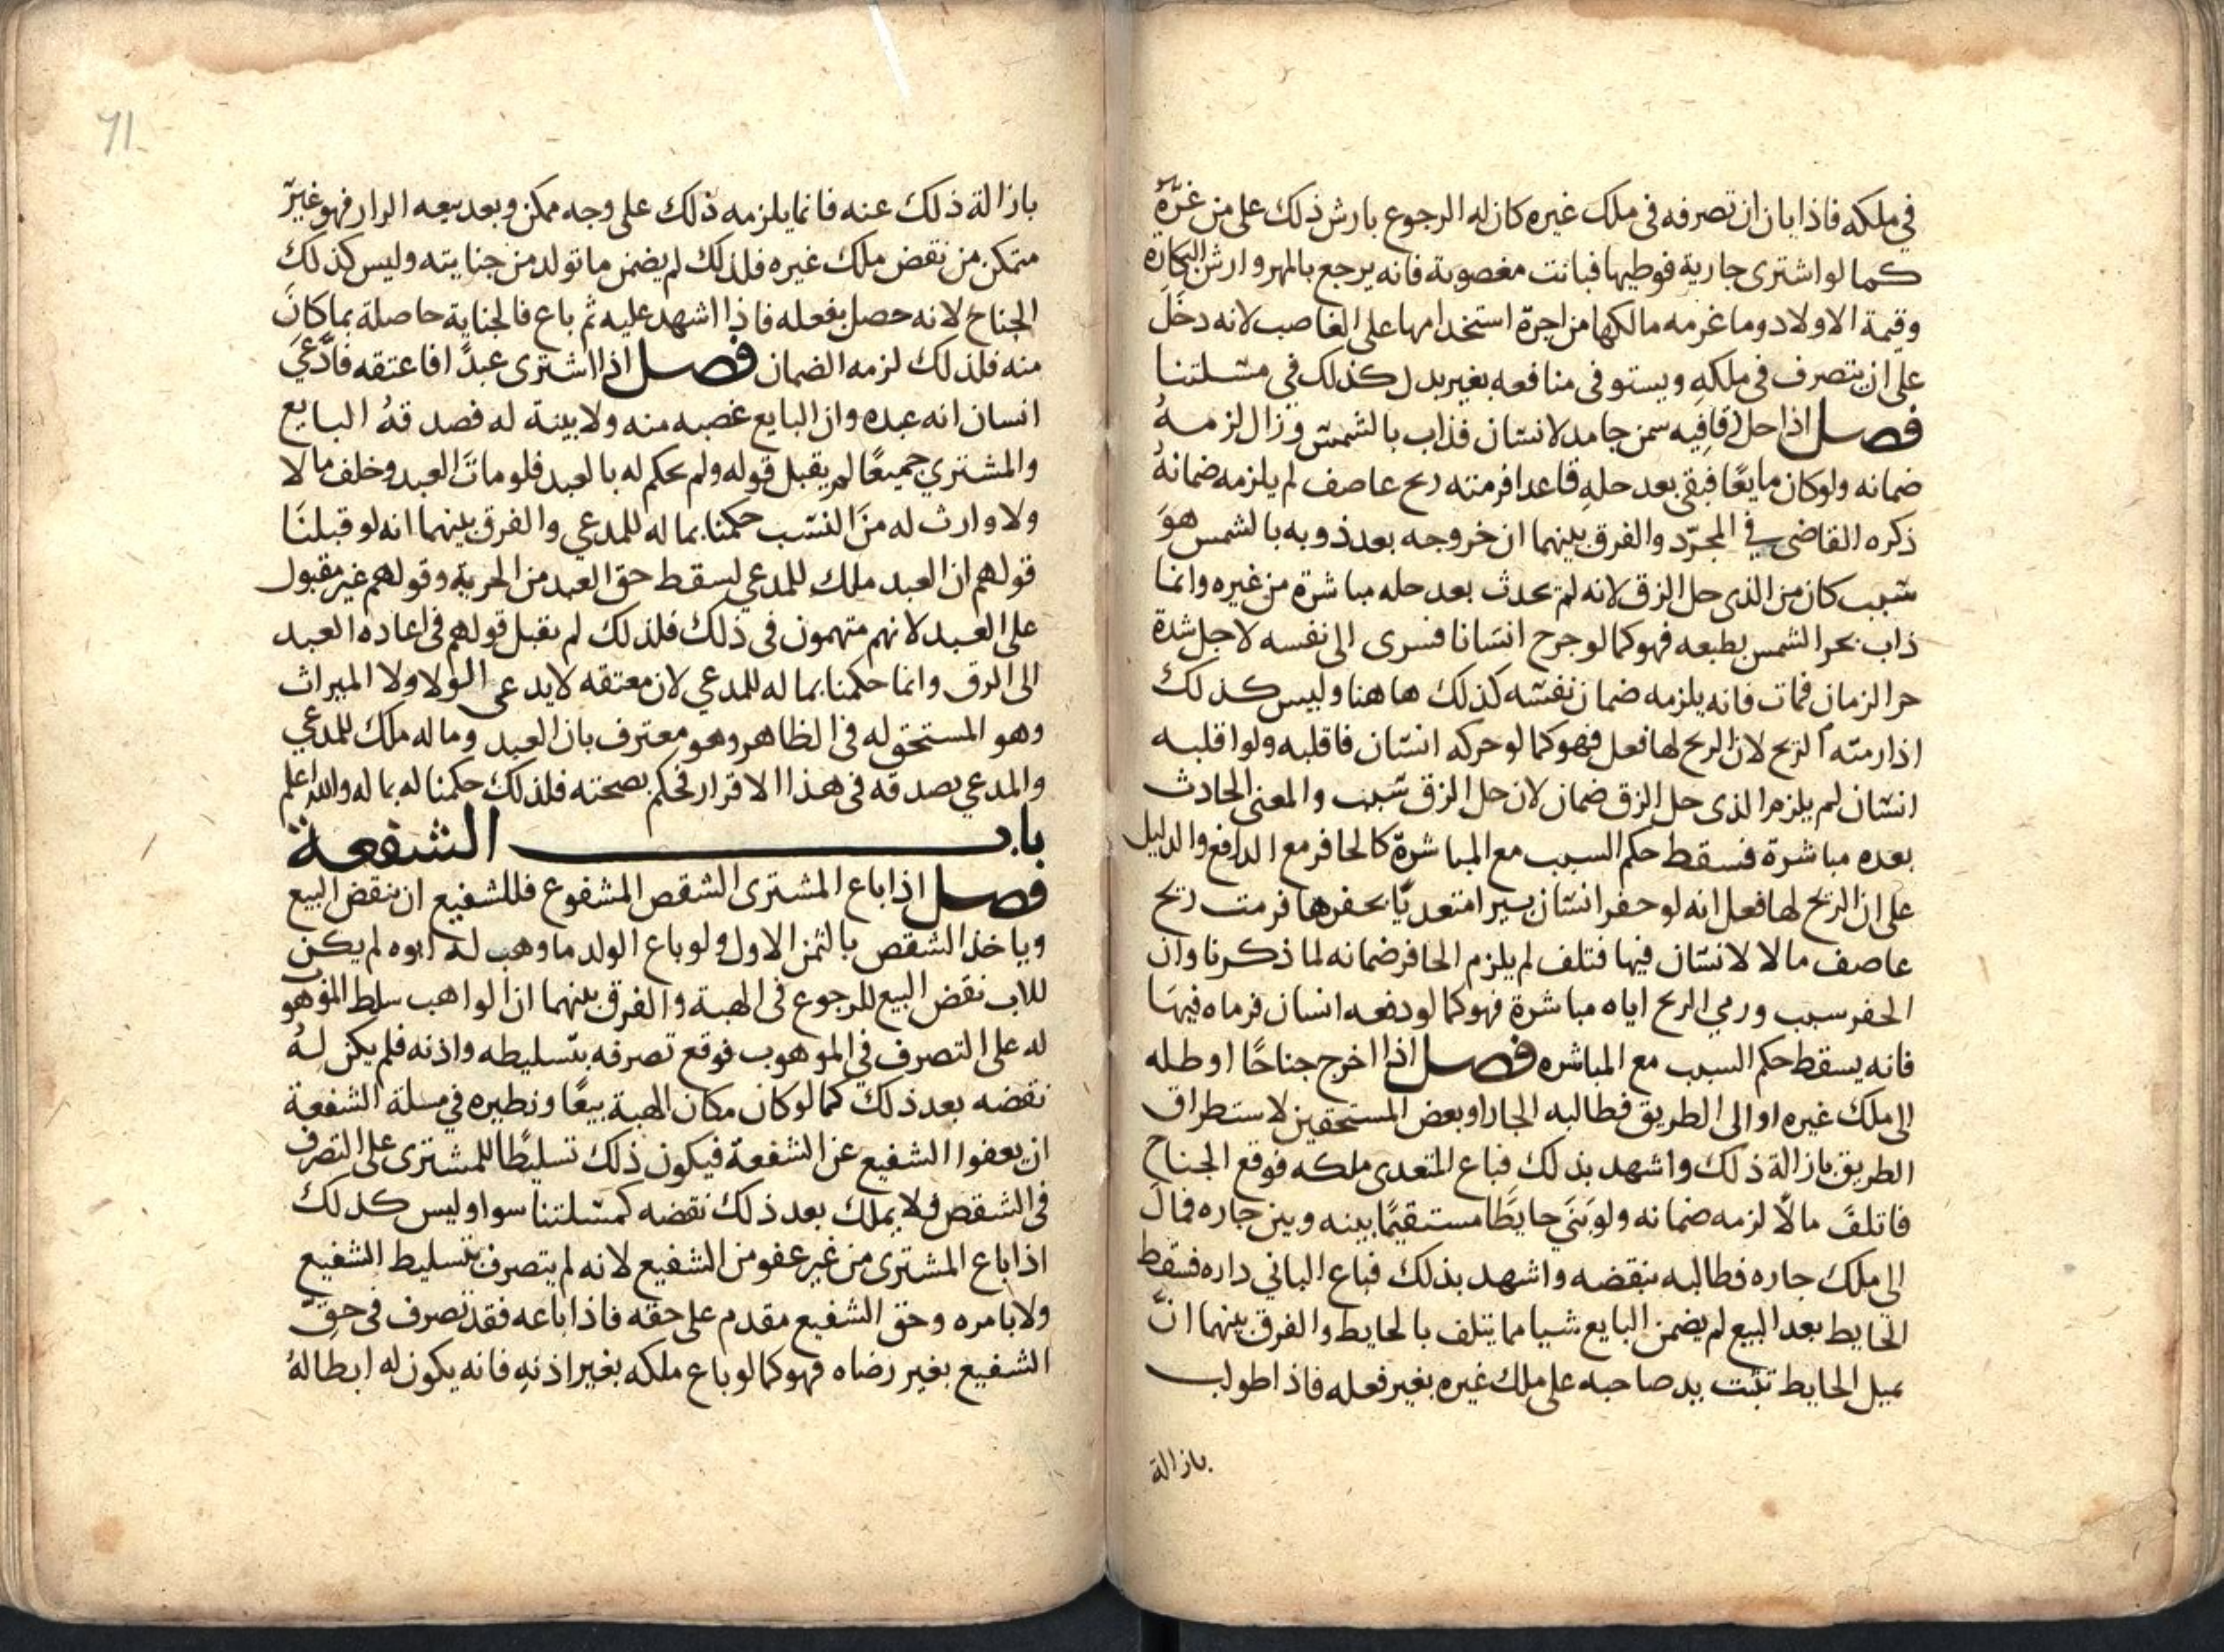 في ملكه فاذا بان ان تصرفه فى ملك غيره كان له الرجوع بارش ذلك على من غرّه
كما لو اشترى جارية فوطيها فبانت مغصوبة فانه يرجع بالمهر وارش البكارة
وقيمة الاولاد وما غرمه مالكها من اجرة استخدامها على الغاصب لانه دخل
على ان يتصرف في ملكه ويستوفى منافعه بغير بدل كذلك في مسئلتنا
فصل اذا حل زقا فيه سمن جامد لانسان فذاب بالشمس وزال لزمه
ضمانه ولو كان مايعًا فبقى بعد حله قاعدا فرمته ريح عاصف لم يلزمه ضمانه
ذكره القاضى في المجرّد والفرق بينهما ان خروجه بعد ذوبه بالشمس هو
سبب كان من الذى حل الزق لانه لم يحدث بعد حله مباشرة من غيره وانما
ذاب بحر الشمس بطبعه فهو كما لو جرح انسانا فسرى الى نفسه لاجل شدة
حر الزمان فمات فانه يلزمه ضمان نفسه كذلك هاهنا وليس كذلك
اذا رمته الريح لان الريح لها فعل فهو كما لو حركه انسان فاقلبه ولو اقلبه
انسان لم يلزم الذى حل الزق ضمان لان حل الزق سبب والمعنى الحادث
بعده مباشرة فسقط حكم السبب مع المباشرة كالحافر مع الدافع والدليل
على ان الريح لها فعل انه لو حفر انسان بيرا متعديًا بحفرها فرمت ريح
عاصف مالا لانسان فيها فتلف لم يلزم الحافر ضمانه لما ذكرنا وان
الحفر سبب ورمي الريح اياه مباشرة فهو كما لو دفعه انسان فرماه فيها
فانه يسقط حكم السبب مع المباشره فصل اذا اخرج جناحًا او ظله
الى ملك غيره او الى الطريق فطالبه الجار او بعض المستحقين لاستطراق
الطريق بازالة ذلك واشهد بذلك فباع المتعدى ملكه فوقع الجناح
فاتلف مالًا لزمه ضمانه ولو بَنَي حايطًا مستقيمًا بينه وبين جاره فمال
الى ملك جاره فطالبه بنقضه واشهد بذلك فباع الباني داره فسقط
الحايط بعد البيع لم يضمن البايع شيا مما يتلف بالحايط والفرق بينهما انّ
بميل الحايط تثبت يد صاحبه على ملك غيره بغير فعله فاذا طولب
بازالة
71
بازالة ذلك عنه فانما يلزمه ذلك على وجه ممكن وبعد بيعه الدار فهو غير
متمكن من نقض ملك غيره فلذلك لم يضمن ما تولد من جنايته وليس كذلك
الجناح لانه حصل بفعله فاذا اشهد عليه ثم باع فالجناية حاصلة بما كان
منه فلذلك لزمه الضمان فصل اذا اشترى عبدًا فاعتقه فادّعي
انسان انه عبده وان البايع غصبه منه ولا بينة له فصدقهُ البايع
والمشتري جميعًا لم يقبل قوله ولم يحكم له بالعبد فلو مات العبد وخلف مالا
ولا وارث له من النسب حكمنا بماله للمدعي والفرق بينهما انه لو قبلنا
قولهم ان العبد ملك للمدعي لسقط حق العبد من الحرية وقولهم غير مقبول
على العبد لانهم متهمون فى ذلك فلذلك لم يقبل قولهم فى اعاده العبد
الى الرق وانما حكمنا بماله للمدعي لان معتقه لا يدعى الولا ولا الميراث
وهو المستحق له فى الظاهر وهو معترف بان العبد وماله ملك للمدعي
والمدعي يصدقه فى هذا الاقرار فحكم بصحته فلذلك حكمنا له بماله والله اعلم
باب الشفعة
فصل اذا باع المشترى الشقص المشفوع فللشفيع ان ينقض البيع
وياخذ الشقص بالثمن الاول ولو باع الولد ما وهب له ابوه لم يكن
للاب نقض البيع للرجوع فى الهبة والفرق بينهما ان الواهب سلط الموهوب
له على التصرف فى الموهوب فوقع تصرفه بتسليطه واذنه فلم يكن له
نقضه بعد ذلك كما لو كان مكان الهبة بيعًا ونظيره في مسلة الشفعة
ان يعفوا الشفيع عن الشفعة فيكون ذلك تسليطًا للمشترى على التصرف
فى الشقص فلا يملك بعد ذلك نقضه كمسئلتنا سوا وليس كذلك
اذا باع المشترى من غير عفو من الشفيع لانه لم يتصرف بتسليط الشفيع
ولا بامره وحق الشفيع مقدم على حقه فاذا باعه فقد تصرف فى حق
الشفيع بغير رضاه فهو كما لو باع ملكه بغير اذنه فانه يكون له ابطاله